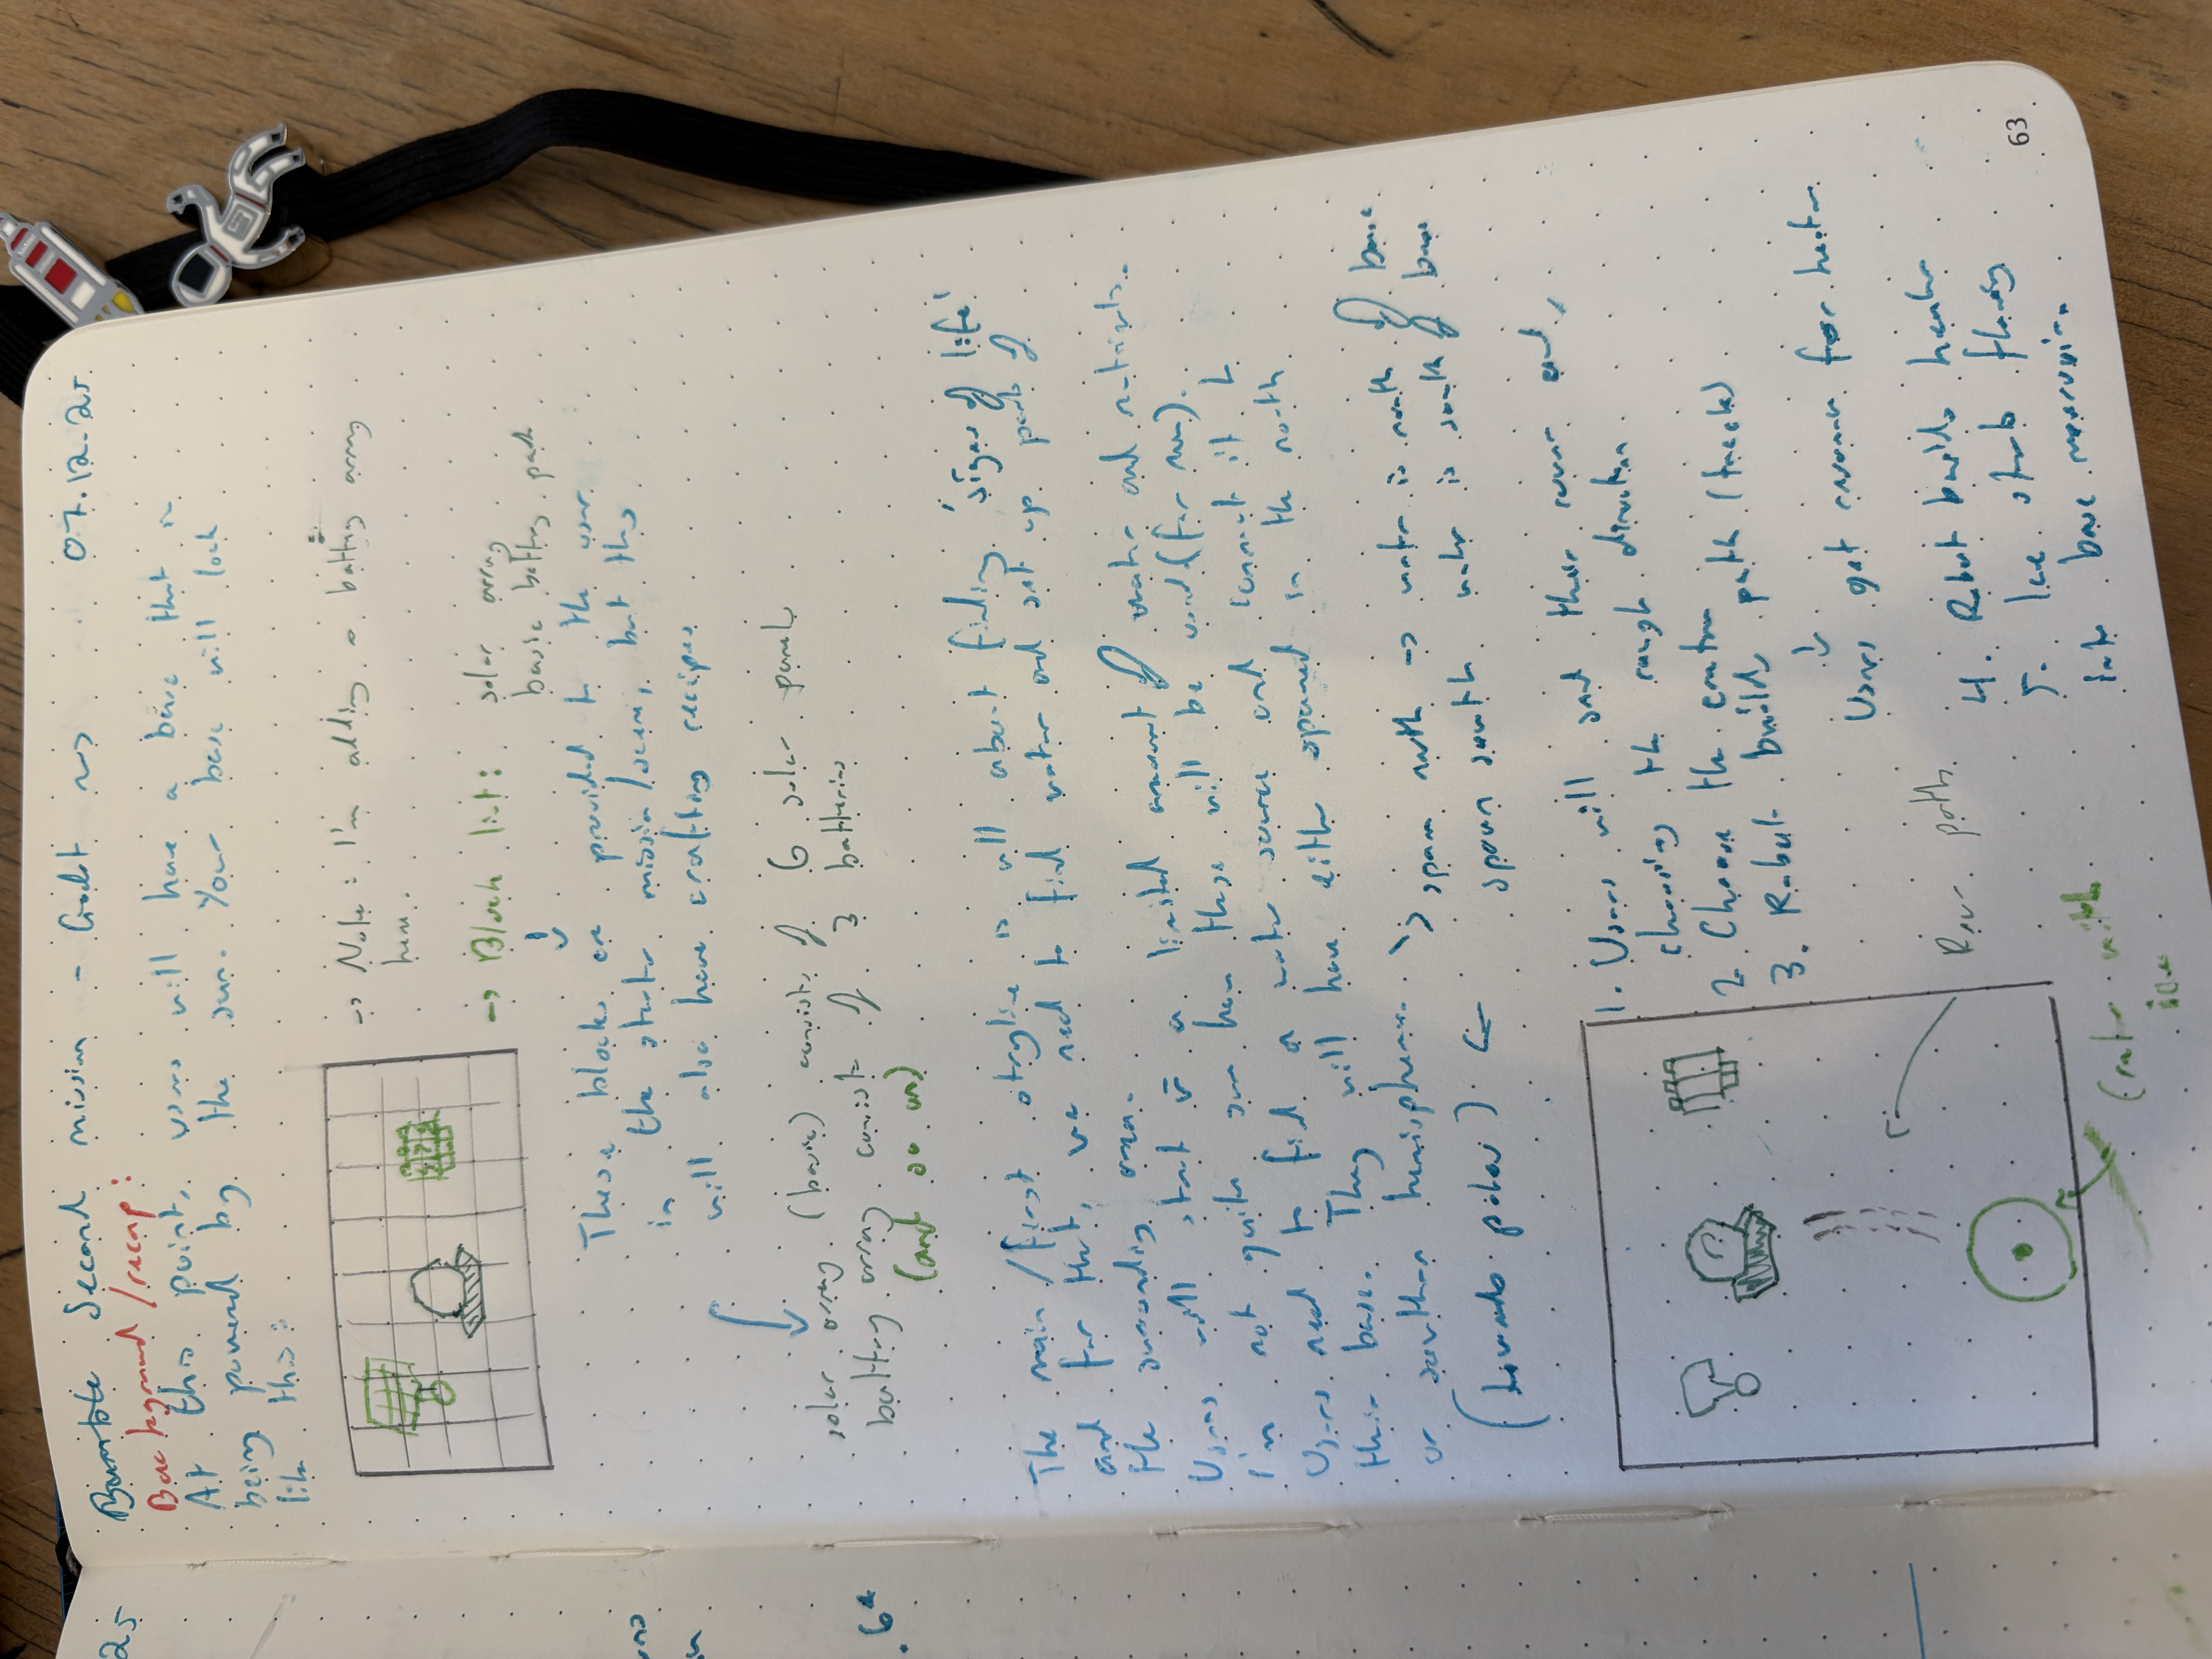 Barnable Second mission - Godot rws 07.12.25
Background/recap:
At this point, users will have a base that is
being powered by the sun. Your base will look
like this:
-> Note: I'm adding a battery array
here.
-> Block list: solar array
basic battery pack
These blocks are provided to the user
in the start mission/scene, but they
will also have crafting recipes
solar array (basic) consists of 6 solar panels
battery array consist of 3 batteries
(and so on)
The main/first storyline is all about finding 'signs of life'
and for that, we need to find water and set up parts of
the surrounding area.
Users will start w a limited amount of water and nutrients.
I'm not quite sure how these will be used (for now).
Users need to find a water source and 'connect' it to
their base. They will have either spawned in the north
or southern hemisphere. -> spawn north -> water is north of base
(towards poles) <- spawn south water is south of base
1. Users will send their rover out,
choosing the rough direction.
2. Choose the crater
3. Robot builds path (tracks)
Users get resources for heater
4. Robot builds heater
5. Ice starts flowing
into base reservoir.
Rover path
(crater with
ice
63
25